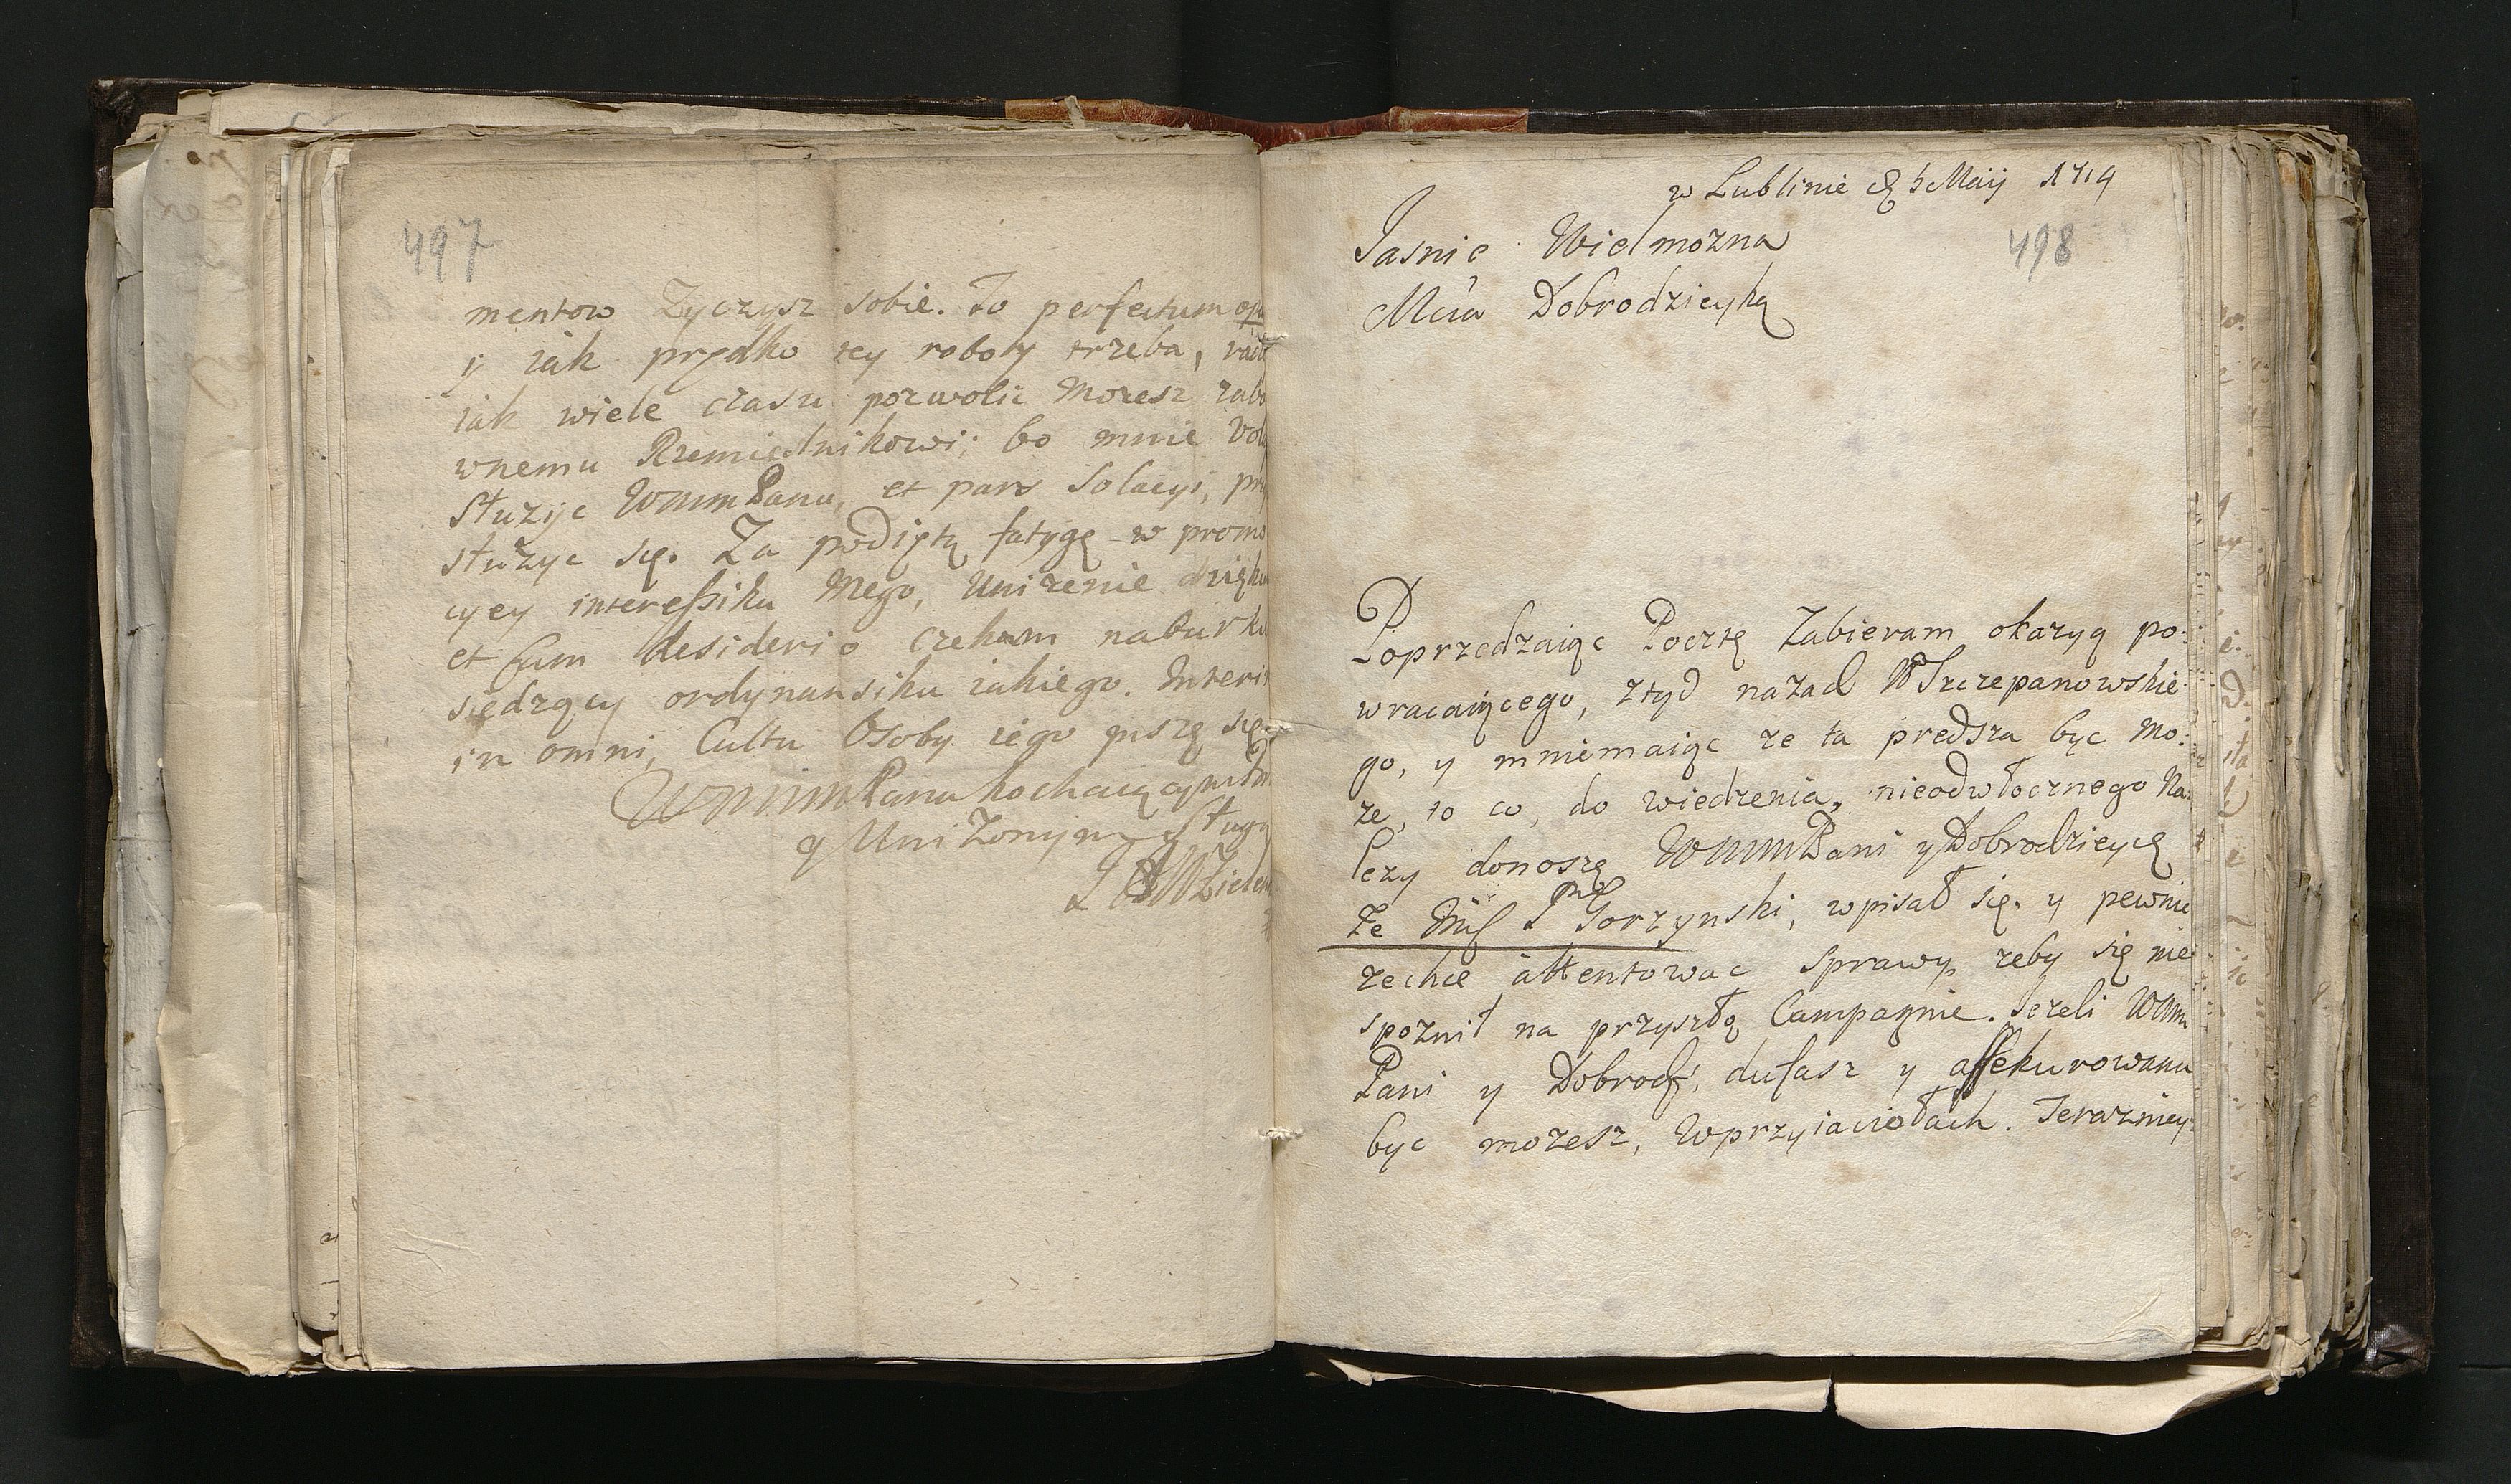 497
mentow Zyczysz sobie. To perfectum
y iak prędko tey roboty trzeba,
iak wiele czasu pozwolic Mozesz
wnemu Rzemięslnikowi; bo mnie
Służyc WmmPanu, et pars Solacyi,
służyc się. Za podiętą fatygę w promo
cyey interessiku Mego, Unizenie
et sum desiderio czekam
siędzący ordynansiku iakiego.
in omni, Cultu Osoby iego piszę się
WmmPana kochaiącym
y Uni Zonym Sługą
w Lublinie 5 Maij 1714
498
Jasnie Wielmozna
Mcia Dobrodzieyko
Poprzedzaiąc Pocztę Zabieram okazyą po:
wracaiącego, ztąd nazad Szczepanowskie
go, y mniemaiąc ze ta prędsza byc mo:
ze, to co, do wiedzenia, nieodwłocznego Na:
lezy donoszę WmmPani y Dobrodzieycę
Ze Gorzynski, wpisał się. y pewnie
zechce attentowac sprawy, zeby się nie
spoznił na przyszłą Campagnie. Jezeli Wmm
Pani y Dobrodz: dufasz y assekurowana
byc mozesz, w przyiaciołach. Terazniey: